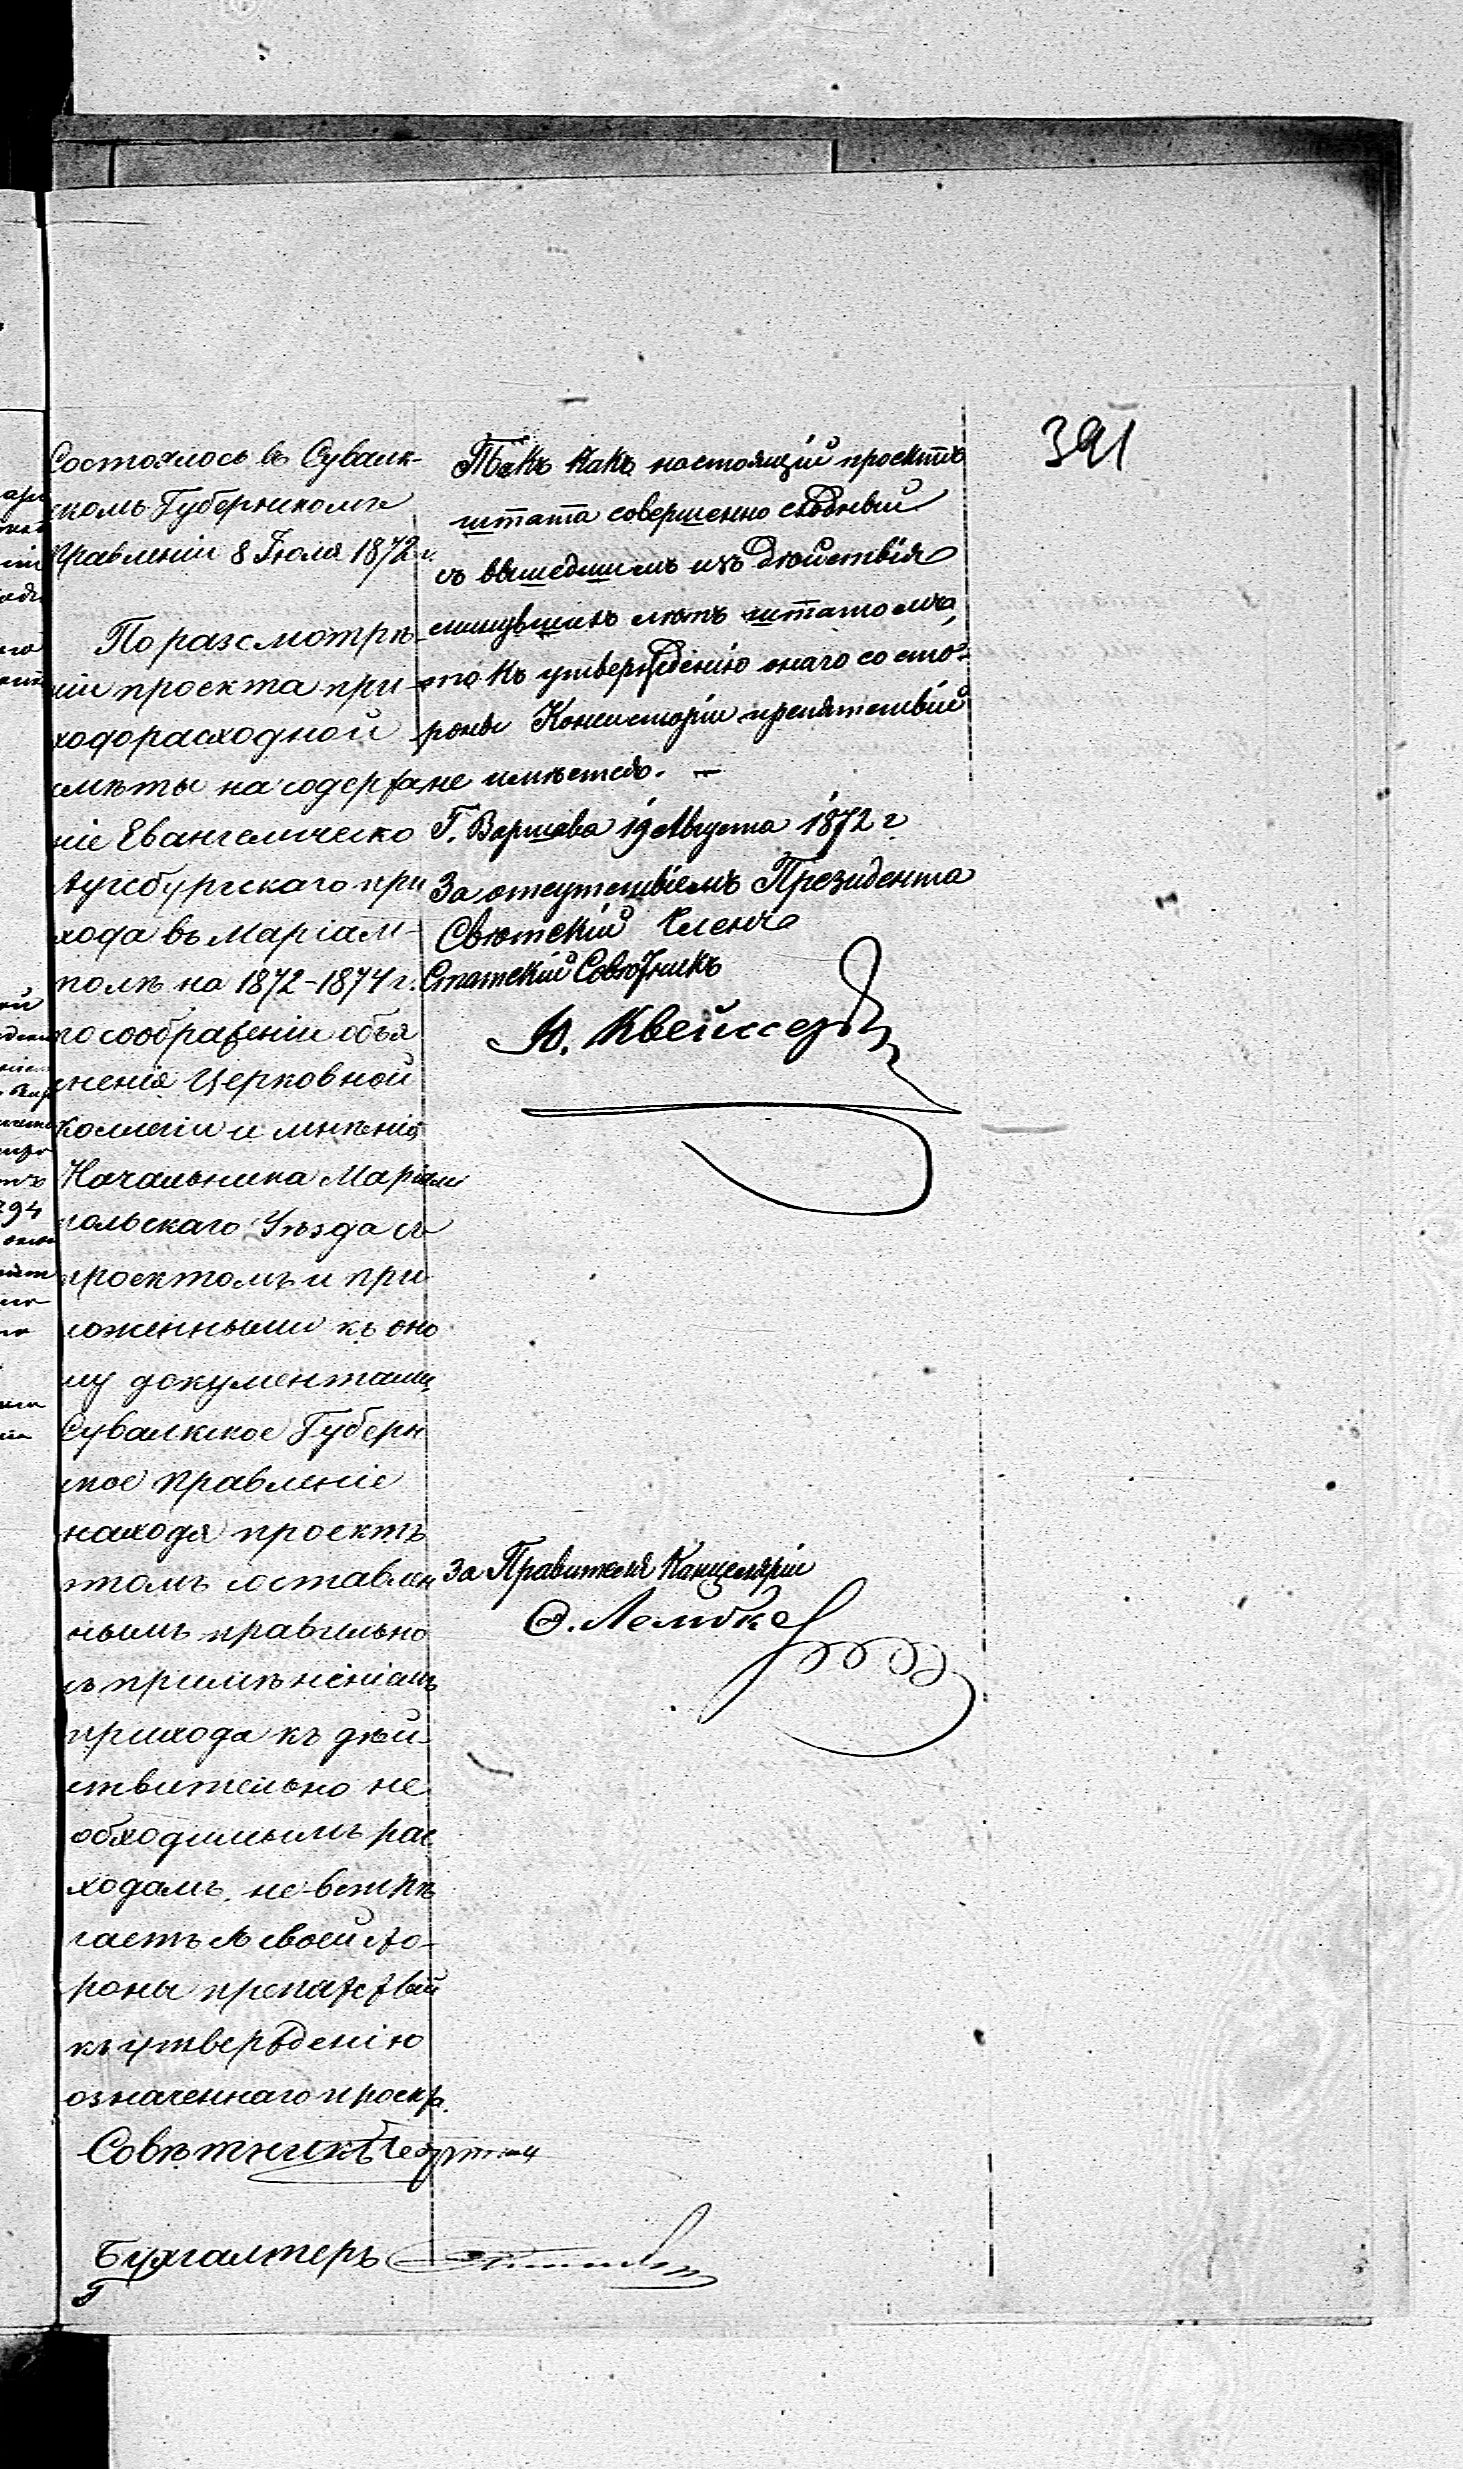 391
Состоялось въ Сувалк-
скомъ Губернскомъ
Правленіи 8 Іюля 1872 г.
По разсмотрѣ-
ніи проекта при-
ходорасходной
смѣты на содержа
ніе Евангелическо
Аугсбургскаго при
хода въ Маріам-
полѣ на 1872-1874 г.
по соображеніи объя
сненія Церковной
Коллегіи и мнѣнія
Начальника Маріам
польскаго Уѣзда съ
проектомъ и при
ложенными къ оно
му документами,
Сувалкское Губерн
ское Правленіе
находя проектъ
этомъ составлен
нымъ правильно
съ примѣненіемъ
прихода къ дѣй
ствительно не
обходимымъ рас
ходамъ, не встрѣ
чаетъ съ своей сто-
роны препятствій
къ утвержденію
означеннаго проекта.
Совѣтникъ
Бухгалтеръ
Такъ какъ настоящій проектъ
штата совершенно сходный
съ вышедшимъ изъ дѣйствія
минувшихъ лѣтъ штатомъ,
то къ утвержденію онаго со сто-
роны Консисторіи препятствій
не имѣется. —
Г. Варшава 19 Августа 1872 г.
За отсутствіемъ Президента
Свѣтскій Членъ
Статскій Совѣтникъ
Ю. Квейссеръ
За Правителя Канцеляріи
Э. Лембке